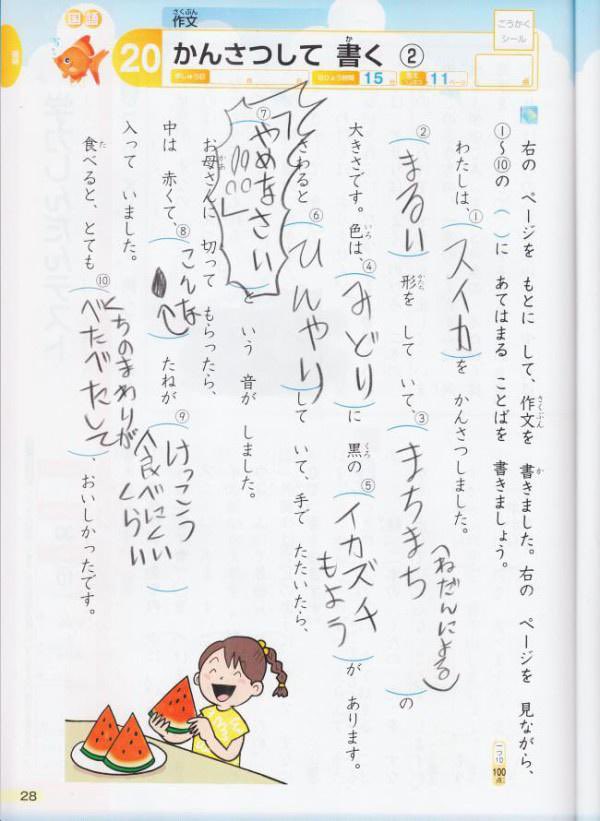 国語
さくぶん
作文
20 かんさつして 書く ②
ごうかく
シール
15
11ページ
右の ページを もとに して、作文を 書きました。右の ページを 見ながら、
①〜⑩の( )に あてはまる ことばを 書きましょう。
わたしは、①(スイカ)を かんさつしました。
②(まるい)形を して いて、③(まちまち(ねだんによる))の
大きさです。色は、④(みどり)に 黒の ⑤(イカズチもよう)が あります。
さわると ⑥(ひんやり)して いて、手で たたいたら、
⑦(「やめなさい!!!!」)と いう 音が しました。
お母さんに 切って もらったら、
中は 赤くて、⑧(こんな)たねが ⑨(けっこう食べにくいくらい)
入って いました。
食べると、とても ⑩(くちのまわりがべたべたして)、おいしかったです。
一つ10
100点
28